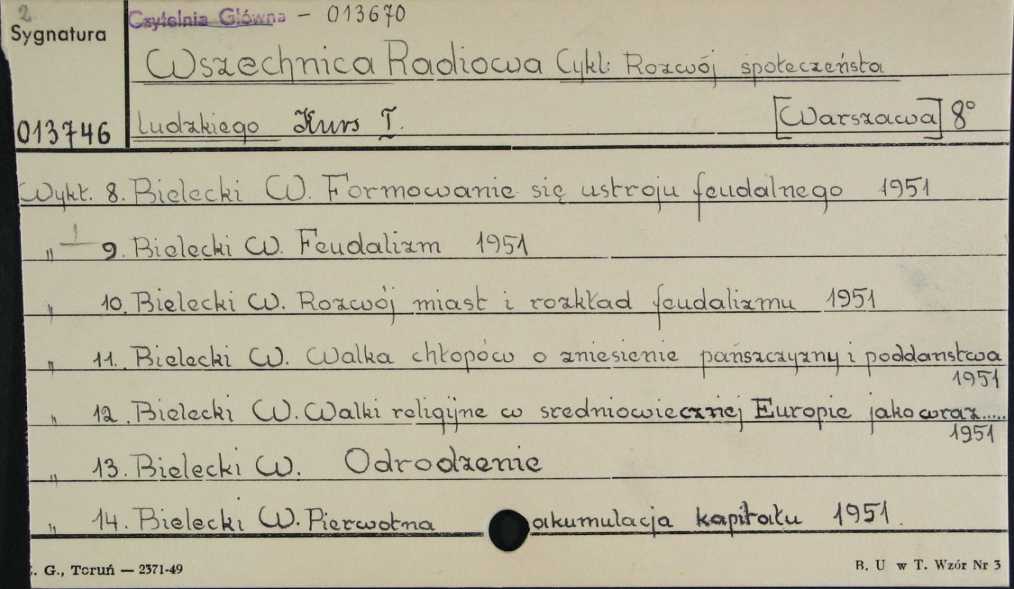 2
Czytelnia Główna - 013670
Sygnatura
Wszechnica Radiowa Cykl: Rozwój społeczeństa
013746 ludzkiego Kurs I. [Warszawa] 8°
Wykł. 8. Bielecki W. Formowanie się ustroju feudalnego 1951
„ 9. Bielecki W. Feudalizm 1951
„ 10. Bielecki W. Rozwój miast i rozkład feudalizmu 1951
„ 11. Bielecki W. Walka chłopów o zniesienie pańszczyzny i poddaństwa
1951
„ 12. Bielecki W. Walki religijne w sredniowiecznej Europie jako wraz.....
1951
„ 13. Bielecki W. Odrodzenie
„ 14. Bielecki W. Pierwotna akumulacja kapitału 1951.
G., Toruń — 2371-49 B. U w T. Wzór Nr 3